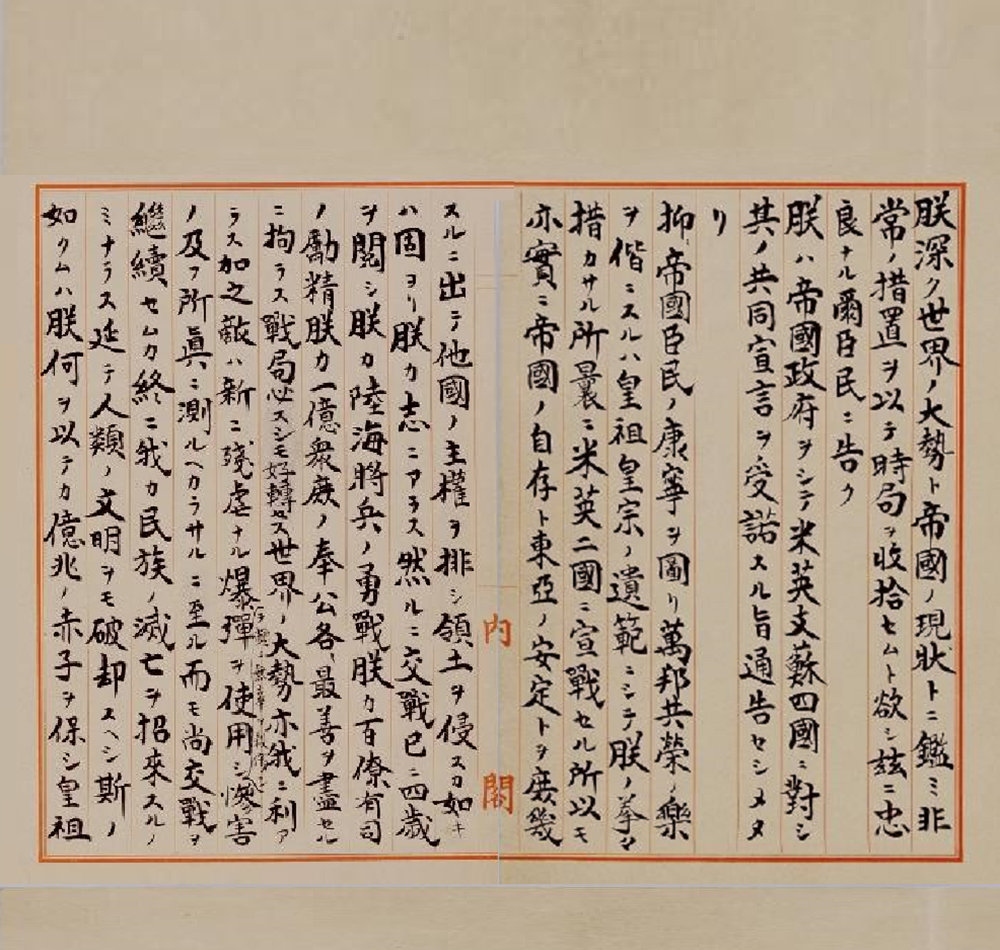 朕深ク世界ノ大勢ト帝國ノ現狀トニ鑑ミ非
常ノ措置ヲ以テ時局ヲ收拾セムト欲シ茲ニ忠
良ナル爾臣民ニ告ク
朕ハ帝國政府ヲシテ米英支蘇四國ニ對シ
其ノ共同宣言ヲ受諾スル旨通告セシメタ
リ
抑〻帝國臣民ノ康寧ヲ圖リ萬邦共榮ノ樂
ヲ偕ニスルハ皇祖皇宗ノ遺範ニシテ朕ノ拳〻
措カサル所曩ニ米英二國ニ宣戰セル所以モ
亦實ニ帝國ノ自存ト東亞ノ安定トヲ庶幾
內閣
スルニ出テ他國ノ主權ヲ排シ領土ヲ侵スカ如キ
ハ固ヨリ朕カ志ニアラス然ルニ交戰已ニ四歲
ヲ閱シ朕カ陸海將兵ノ勇戰朕カ百僚有司
ノ勵精朕カ一億衆庶ノ奉公各〻最善ヲ盡セル
ニ拘ラス戰局必スシモ好轉セス世界ノ大勢亦我ニ利ア
ラス加之敵ハ新ニ殘虐ナル爆彈ヲ使用シ
テ頻ニ無辜ヲ殺傷シ
慘害
ノ及フ所眞ニ測ルヘカラサルニ至ル而モ尚交戰ヲ
繼續セムカ終ニ我カ民族ノ滅亡ヲ招來スルノ
ミナラス延テ人類ノ文明ヲモ破却スヘシ斯ノ
如クムハ朕何ヲ以テカ億兆ノ赤子ヲ保シ皇祖